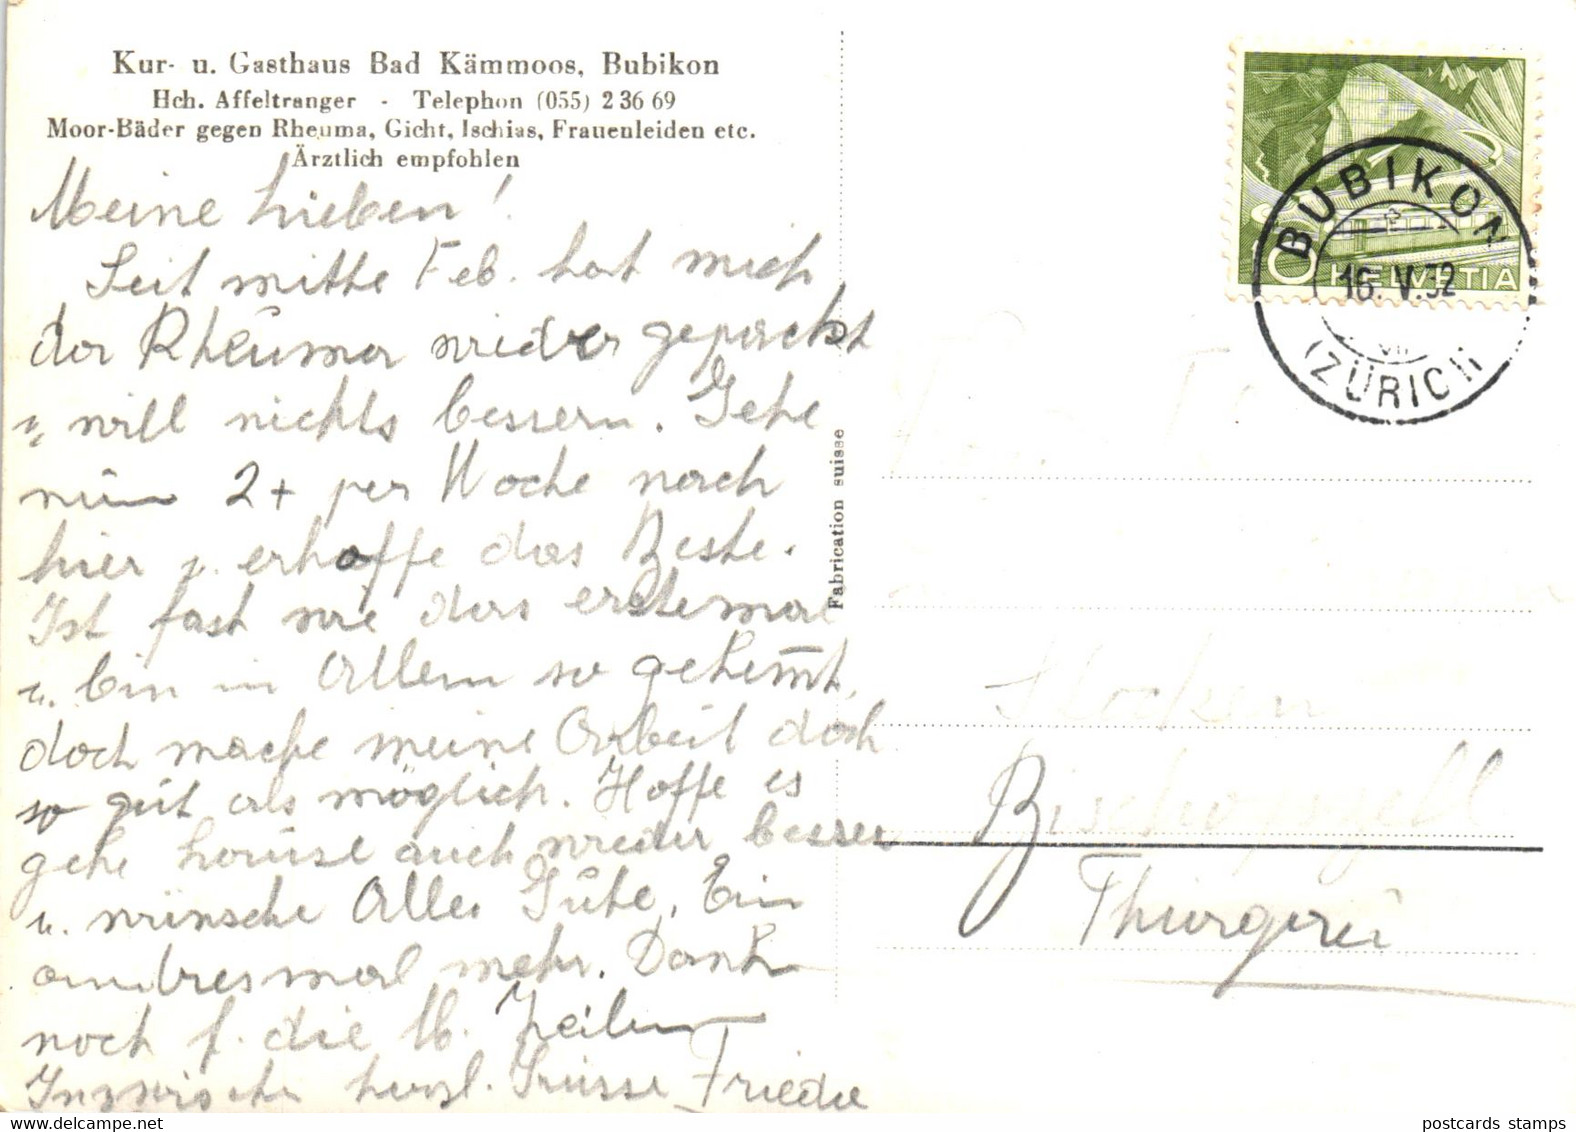 Kur- u. Gasthaus Bad Kämmoos, Bubikon
Hch. Affeltranger - Telephon (055) 2 36 69
Moor-Bäder gegen Rheuma, Gicht, Ischias, Frauenleiden etc.
Ärztlich empfohlen
Meine Lieben!
Seit mitte Feb. hat mich
der Rheuma wieder gepackt
u. will nichts bessern. Gehe
nun 2+ per Woche nach
hier u. erhoffe das Beste.
Ist fast wie das erstemal
u. bin in Allem so gehemmt,
doch mache meine Arbeit doch
so gut als möglich. Hoffe es
gehe Louise auch wieder besser
u. wünsche Alles Gute. Ein
andresmal mehr. Dank
noch f. die lb. Zeilen
Inzwischen herzl. Grüsse Friedie
Fabrication suisse
HELVETIA
BUBIKON
16. V. 52
(ZÜRICH)
Hocken
Bischofszell
Thurgau
postcards stamps